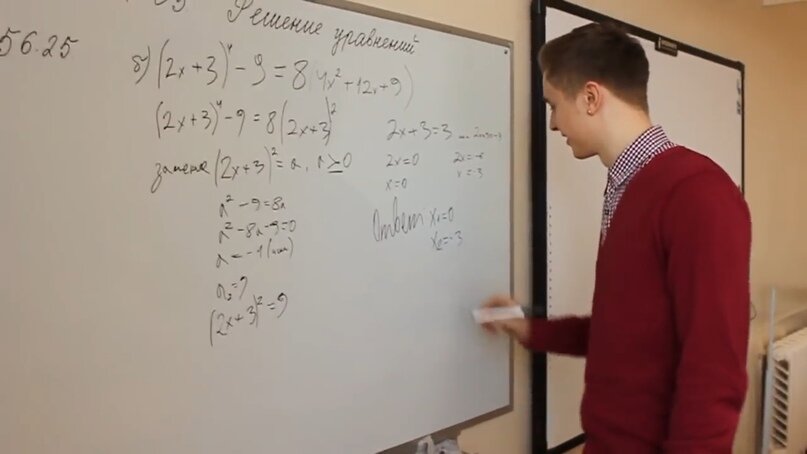 56.25
Решение уравнений
б) (2x+3)⁴-9=8(4x²+12x+9)
(2x+3)⁴-9=8(2x+3)²
замена (2x+3)²=a, a≥0
a²-9=8a
a²-8a-9=0
a=-1
a₂=9
(2x+3)²=9
2x+3=3
2x=0 2x=-6
x=0 x=-3
Ответ x₁=0
x₂=-3